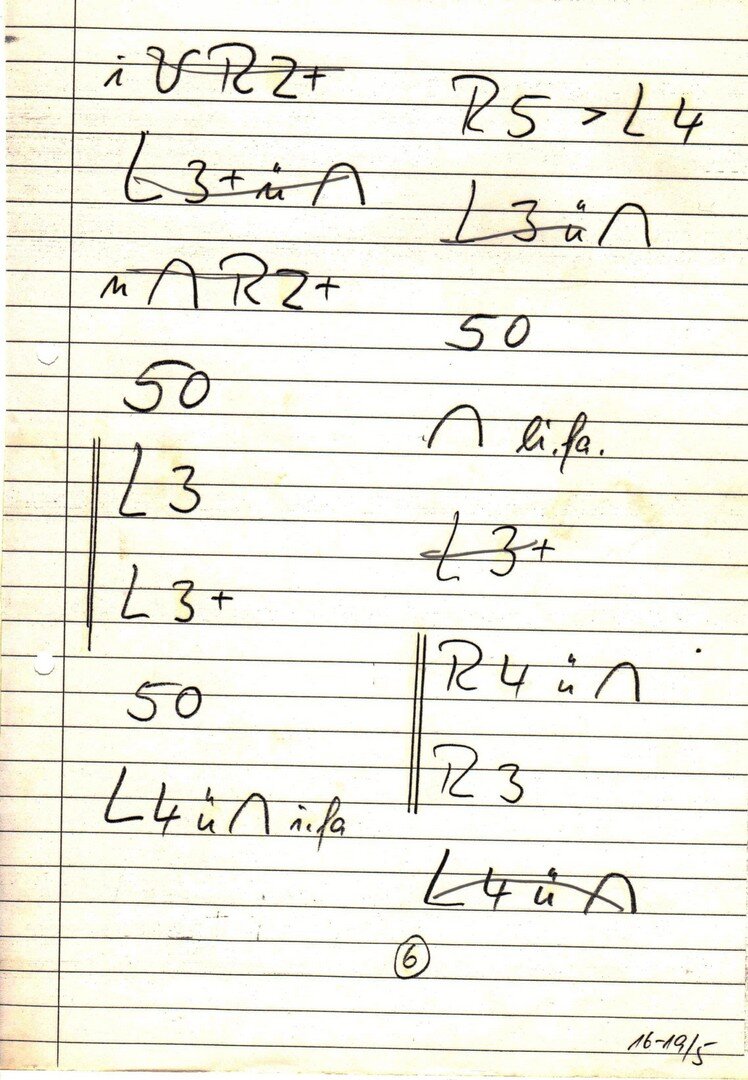 i ʊ R2+
L3+ ü ∩
n ∩ R2+
50
L3
L3+
50
L4 ü ∩
R5 > L4
L3 ü ∩
50
∩ li.fa.
L3+
R4 ü ∩
R3
L4 ü ∩
6
16-19/5